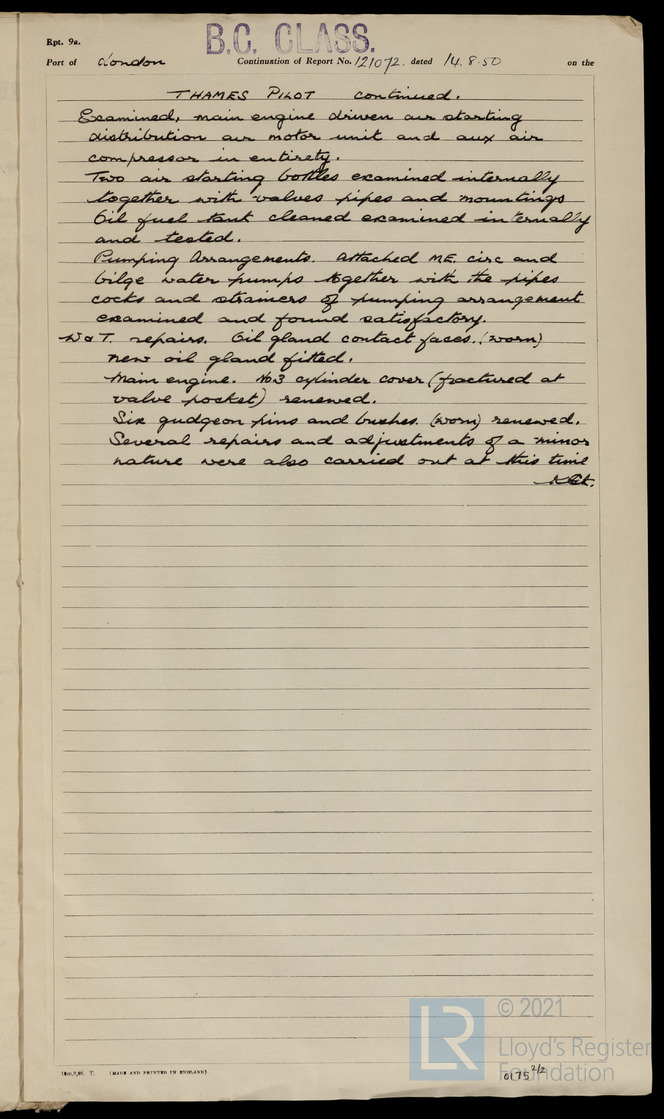 Rpt. 9a.
B.C. CLASS.
Port of London Continuation of Report No. 121072. dated 14.8.50 on the
THAMES PILOT continued.
Examined, main engine driven air starting
distribution air motor unit and aux air
compressor in entirety.
Two air starting bottles examined internally
together with valves pipes and mountings
Oil fuel tank cleaned examined internally
and tested.
Pumping Arrangements. Attached M.E. circ and
bilge water pumps together with the pipes
cocks and strainers of pumping arrangement
examined and found satisfactory.
W & T. repairs. Oil gland contact faces. (worn)
new oil gland fitted.
Main engine. No3 cylinder cover (fractured at
valve pocket) renewed.
Six gudgeon pins and bushes. (worn) renewed.
Several repairs and adjustments of a minor
nature were also carried out at this time
(MADE AND PRINTED IN ENGLAND)
0175 2/2
LR
© 2021
Lloyd's Register
Foundation